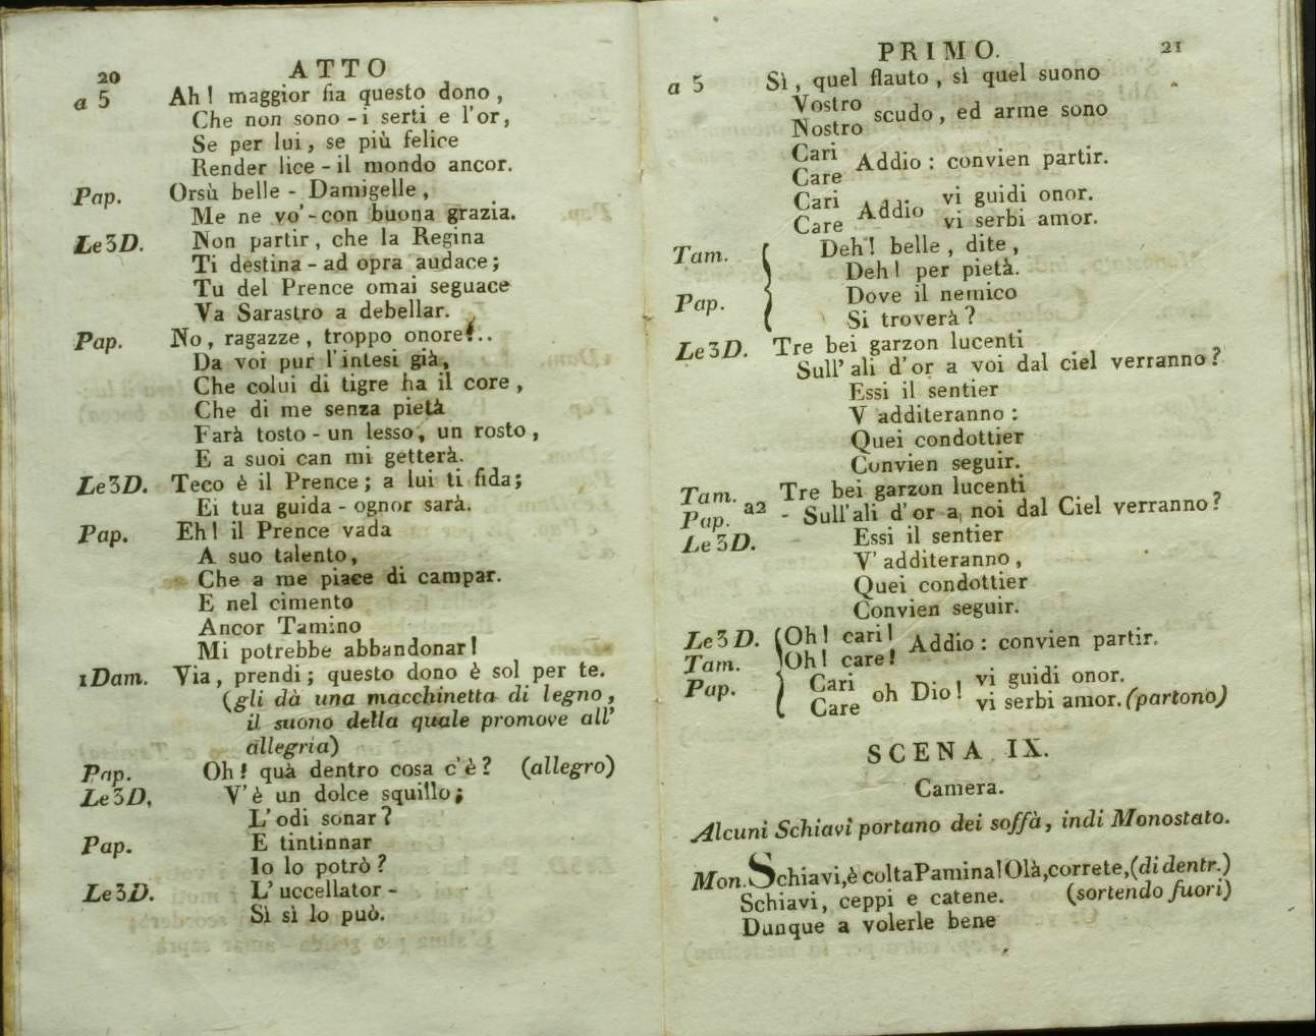 20 ATTO
a 5 Ah! maggior fia questo dono,
Che non sono - i serti e l'or,
Se per lui, se più felice
Render lice - il mondo ancor.
Pap. Orsù belle - Damigelle,
Me ne vo'- con buona grazia.
Le3D. Non partir, che la Regina
Ti destina - ad opra audace;
Tu del Prence omai seguace
Va Sarastro a debellar.
Pap. No, ragazze, troppo onore!..
Da voi pur l'intesi già,
Che colui di tigre ha il core,
Che di me senza pietà
Farà tosto - un lesso, un rosto,
E a suoi can mi getterà.
Le3D. Teco è il Prence; a lui ti fida;
Ei tua guida - ognor sarà.
Pap. Eh! il Prence vada
A suo talento,
Che a me piace di campar.
E nel cimento
Ancor Tamino
Mi potrebbe abbandonar!
1Dam. Via, prendi; questo dono è sol per te.
(gli dà una macchinetta di legno,
il suono della quale promove all'
allegria)
Pap. Oh! quà dentro cosa c'è? (allegro)
Le3D, V'è un dolce squillo;
L'odi sonar?
Pap. E tintinnar
Io lo potrò?
Le3D. L'uccellator -
Sì sì lo può.
PRIMO. 21
a 5 Sì, quel flauto, sì quel suono
Vostro
Nostro scudo, ed arme sono
Cari
Care Addio: convien partir.
Cari vi guidi onor.
Care Addio vi serbi amor.
Tam. Deh! belle, dite,
Deh! per pietà.
Pap. Dove il nemico
Si troverà?
Le3D. Tre bei garzon lucenti
Sull'ali d'or a voi dal ciel verranno?
Essi il sentier
V additeranno:
Quei condottier
Convien seguir.
Tam. Tre bei garzon lucenti
Pap. a2 - Sull'ali d'or a noi dal Ciel verranno?
Le3D. Essi il sentier
V'additeranno,
Quei condottier
Convien seguir.
Le3D. Oh! cari! Addio: convien partir.
Tam. Oh! care!
Pap. Cari oh Dio! vi guidi onor.
Care vi serbi amor. (partono)
SCENA IX.
Camera.
Alcuni Schiavi portano dei soffà, indi Monostato.
Mon. Schiavi, è colta Pamina! Olà, correte, (di dentr.)
Schiavi, ceppi e catene. (sortendo fuori)
Dunque a volerle bene